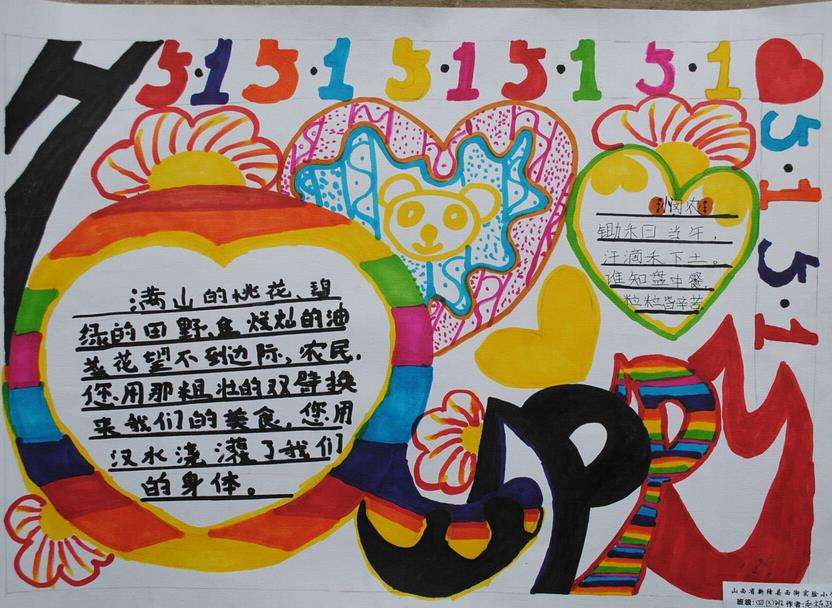 5·1 5·1 5·1 5·1 5·1
5·1
5·1
HAPPY
满山的桃花、碧
绿的田野,金灿灿的油
菜花望不到边际,农民,
您用那粗壮的双臂换
来我们的美食,您用
汉水浇灌了我们
的身体。
悯农
锄禾日当午,
汗滴禾下土。
谁知盘中餐
粒粒皆辛苦
山西省新绛县西街实验小
班级: 班 作者: